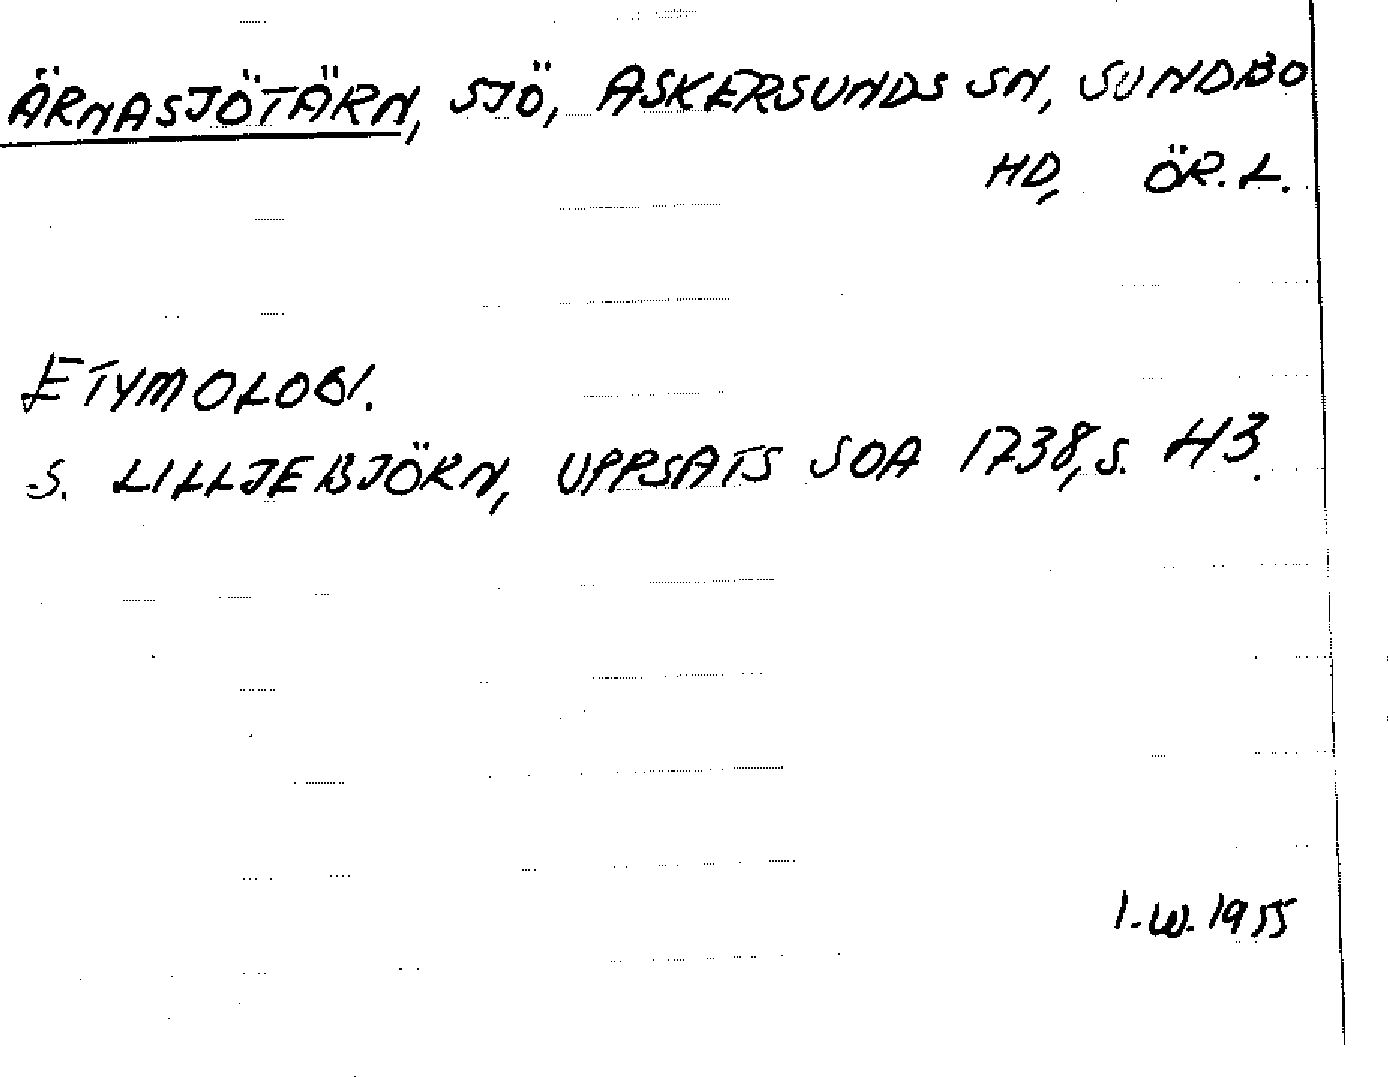 ÄRNASJÖTÄRN, SJÖ, ASKERSUNDS SN, SUNDBO
HD, ÖR. L.
ETYMOLOGI.
S. LILLJEBJÖRN, UPPSATS SOA 1738, S. 43.
I.W. 1955